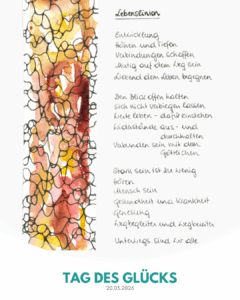 Lebenslinien
Entwicklung
Höhen und Tiefen
Verbindungen schaffen
Mutig auf dem Weg sein
Liebend dem Leben begegnen
Den Blick offen halten
Sich nicht verbiegen lassen
Liebe leben - dafür einstehen
Widerstände aus- und
durchhalten
Verbunden sein mit dem
Göttlichen
Stark sein ist zu wenig
hören
Mensch sein
Gesundheit und Krankheit
Genesung
Wegbegleiter und Wegbereiter
Unterwegs sind wir alle
TAG DES GLÜCKS
20.03.2026